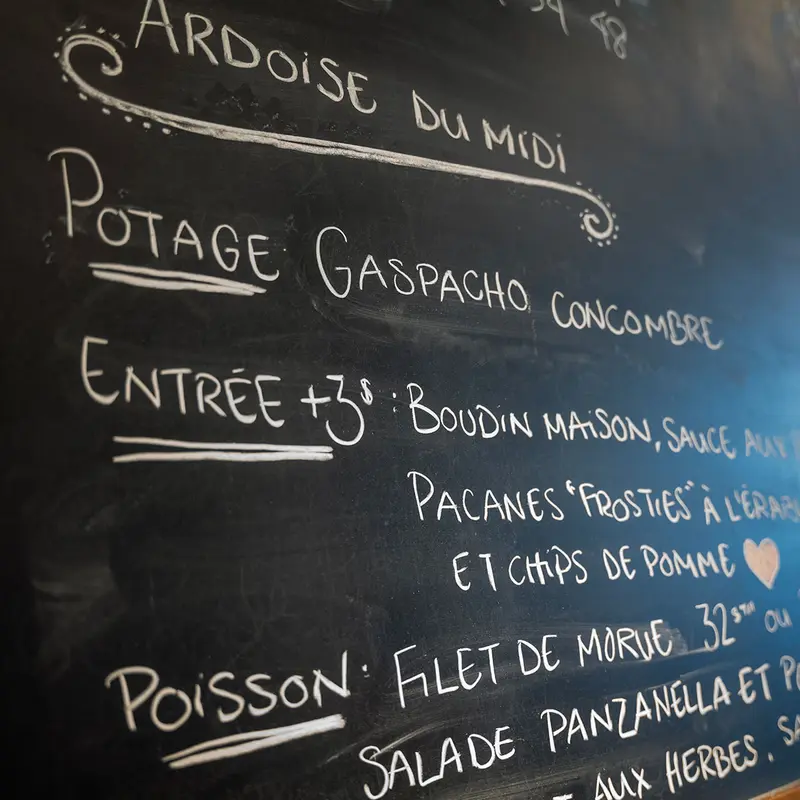 ARDOISE DU MIDI
POTAGE: GASPACHO CONCOMBRE
ENTRÉE +3$ : BOUDIN MAISON, SAUCE AUX
PACANES "FROSTIES" À L'ÉRAB
ET CHIPS DE POMME
POISSON: FILET DE MORUE 32 OU
SALADE PANZANELLA ET
AUX HERBES. SA